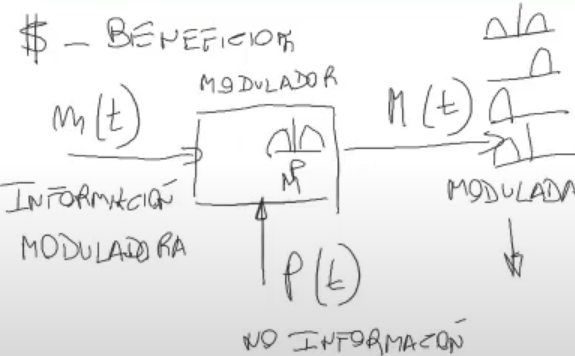 $ - BENEFICIOS
MODULADOR
m(t)
M(t)
INFORMACIÓN
MODULADORA
MODULADA
P(t)
NO INFORMACIÓN